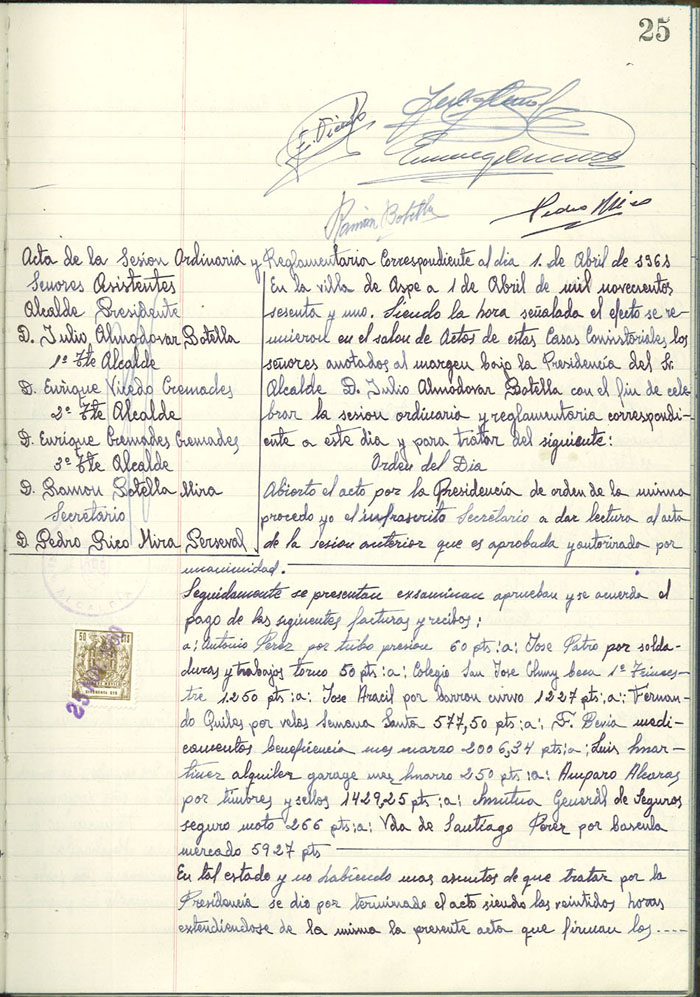 25
E. Vicedo
Ramón Botella
Pedro Rico
Acta de la Sesion Ordinaria y Reglamentaria Correspondiente al dia 1. de Abril de 1961
Senores Asistentes
Alcalde Presidente
D. Julio Almodovar Botella
1º Tte Alcalde
D. Enrique Vicedo Cremades
2º Tte Alcalde
D. Enrique Cremades Cremades
3º Tte Alcalde
D. Ramon Botella Mira
Secretario
D. Pedro Rico Mira Perseval
En la villa de Aspe a 1 de Abril de mil novecientos
sesenta y uno. Siendo la hora señalada el efecto se re-
unieron en el salon de Actos de estas Casas Consistoriales los
señores anotados al margen bajo la Presidencia del Sr.
Alcalde D. Julio Almodovar Botella con el fin de cele-
brar la sesion ordinaria y reglamentaria correspondi-
ente a este dia y para tratar del siguiente:
Orden del Dia
Abierto el acto por la Presidencia de orden de la misma
procedo yo el infrascrito Secretario a dar lectura al acta
de la sesion anterior que es aprobada y autorizado por
unanimidad.
Seguidamente se presentan exsaminan aprueban y se acuerda el
pago de las siguientes facturas y recibos:
a: Antonio Perez por tubo presion 60 pts: a: Jose Patro por solda-
duras y trabajos torno 50 pts: a: Colegio San Jose Cluny beca 1º Trimes-
tre 1250 pts: a: Jose Aracil por barron curvo 1227 pts: a: Fernan-
do Quiles por velas Semana Santa 577,50 pts: a: F. Bevia medi-
camentos beneficencia mes marzo 2006,34 pts: a: Luis Mar-
tinez alquiler garage mes Marzo 250 pts: a: Amparo Alcaras
por timbres y sellos 1429,25 pts: a: Mutua General de Seguros
seguro moto 266 pts: a: Vda de Santiago Perez por bascula
mercado 5927 pts
En tal estado y no habiendo mas asuntos de que tratar por la
Presidencia se dio por terminado el acto siendo las veintidos horas
extendiendose de la misma la presente acta que firman los ----
ALCALDIA
50 CTS
25